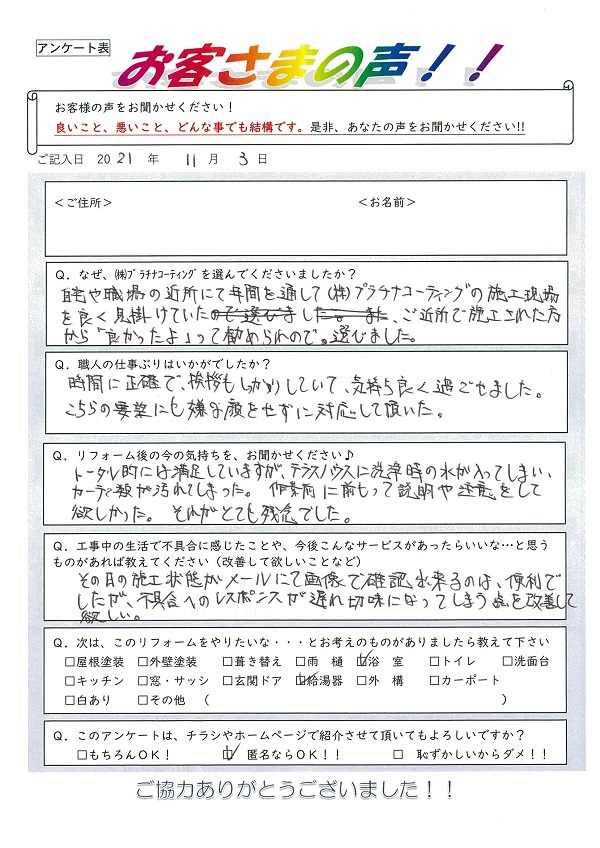 アンケート表
お客さまの声！！
お客様の声をお聞かせください！
良いこと、悪いこと、どんな事でも結構です。是非、あなたの声をお聞かせください!!
ご記入日 2021 年 11 月 3 日
＜ご住所＞ ＜お名前＞
Q．なぜ、㈱プラチナコーティングを選んでくださいましたか？
自宅や職場の近所にて年間を通して(株)プラチナコーティングの施工現場
を良く見掛けていたので選びました。また、ご近所で施工された方
から「良かったよ」って勧められので。選びました。
Q．職人の仕事ぶりはいかがでしたか？
時間に正確で、挨拶もしっかりしていて、気持ち良く過ごせました。
こちらの要望にも嫌な顔をせずに対応して頂いた。
Q．リフォーム後の今の気持ちを、お聞かせください♪
トータル的には満足していますが、テラスハウスに洗浄時の水が入ってしまい、
カーテン類が汚れてしまった。作業前に前もって説明や注意をして
欲しかった。それがとても残念でした。
Q．工事中の生活で不具合に感じたことや、今後こんなサービスがあったらいいな…と思う
ものがあれば教えてください（改善して欲しいことなど）
その日の施工状態がメールにて画像で確認出来るのは、便利で
したが、不具合へのレスポンスが遅れ切味になってしまう点を改善して
欲しい。
Q．次は、このリフォームをやりたいな・・・とお考えのものがありましたら教えて下さい
□屋根塗装 □外壁塗装 □葺き替え □雨 樋 ☑浴 室 □トイレ □洗面台
□キッチン □窓・サッシ □玄関ドア ☑給湯器 □外 構 □カーポート
□白あり □その他 （ ）
Q．このアンケートは、チラシやホームページで紹介させて頂いてもよろしいですか？
□もちろんOK！ ☑ 匿名ならOK！！ □ 恥ずかしいからダメ！！
ご協力ありがとうございました！！